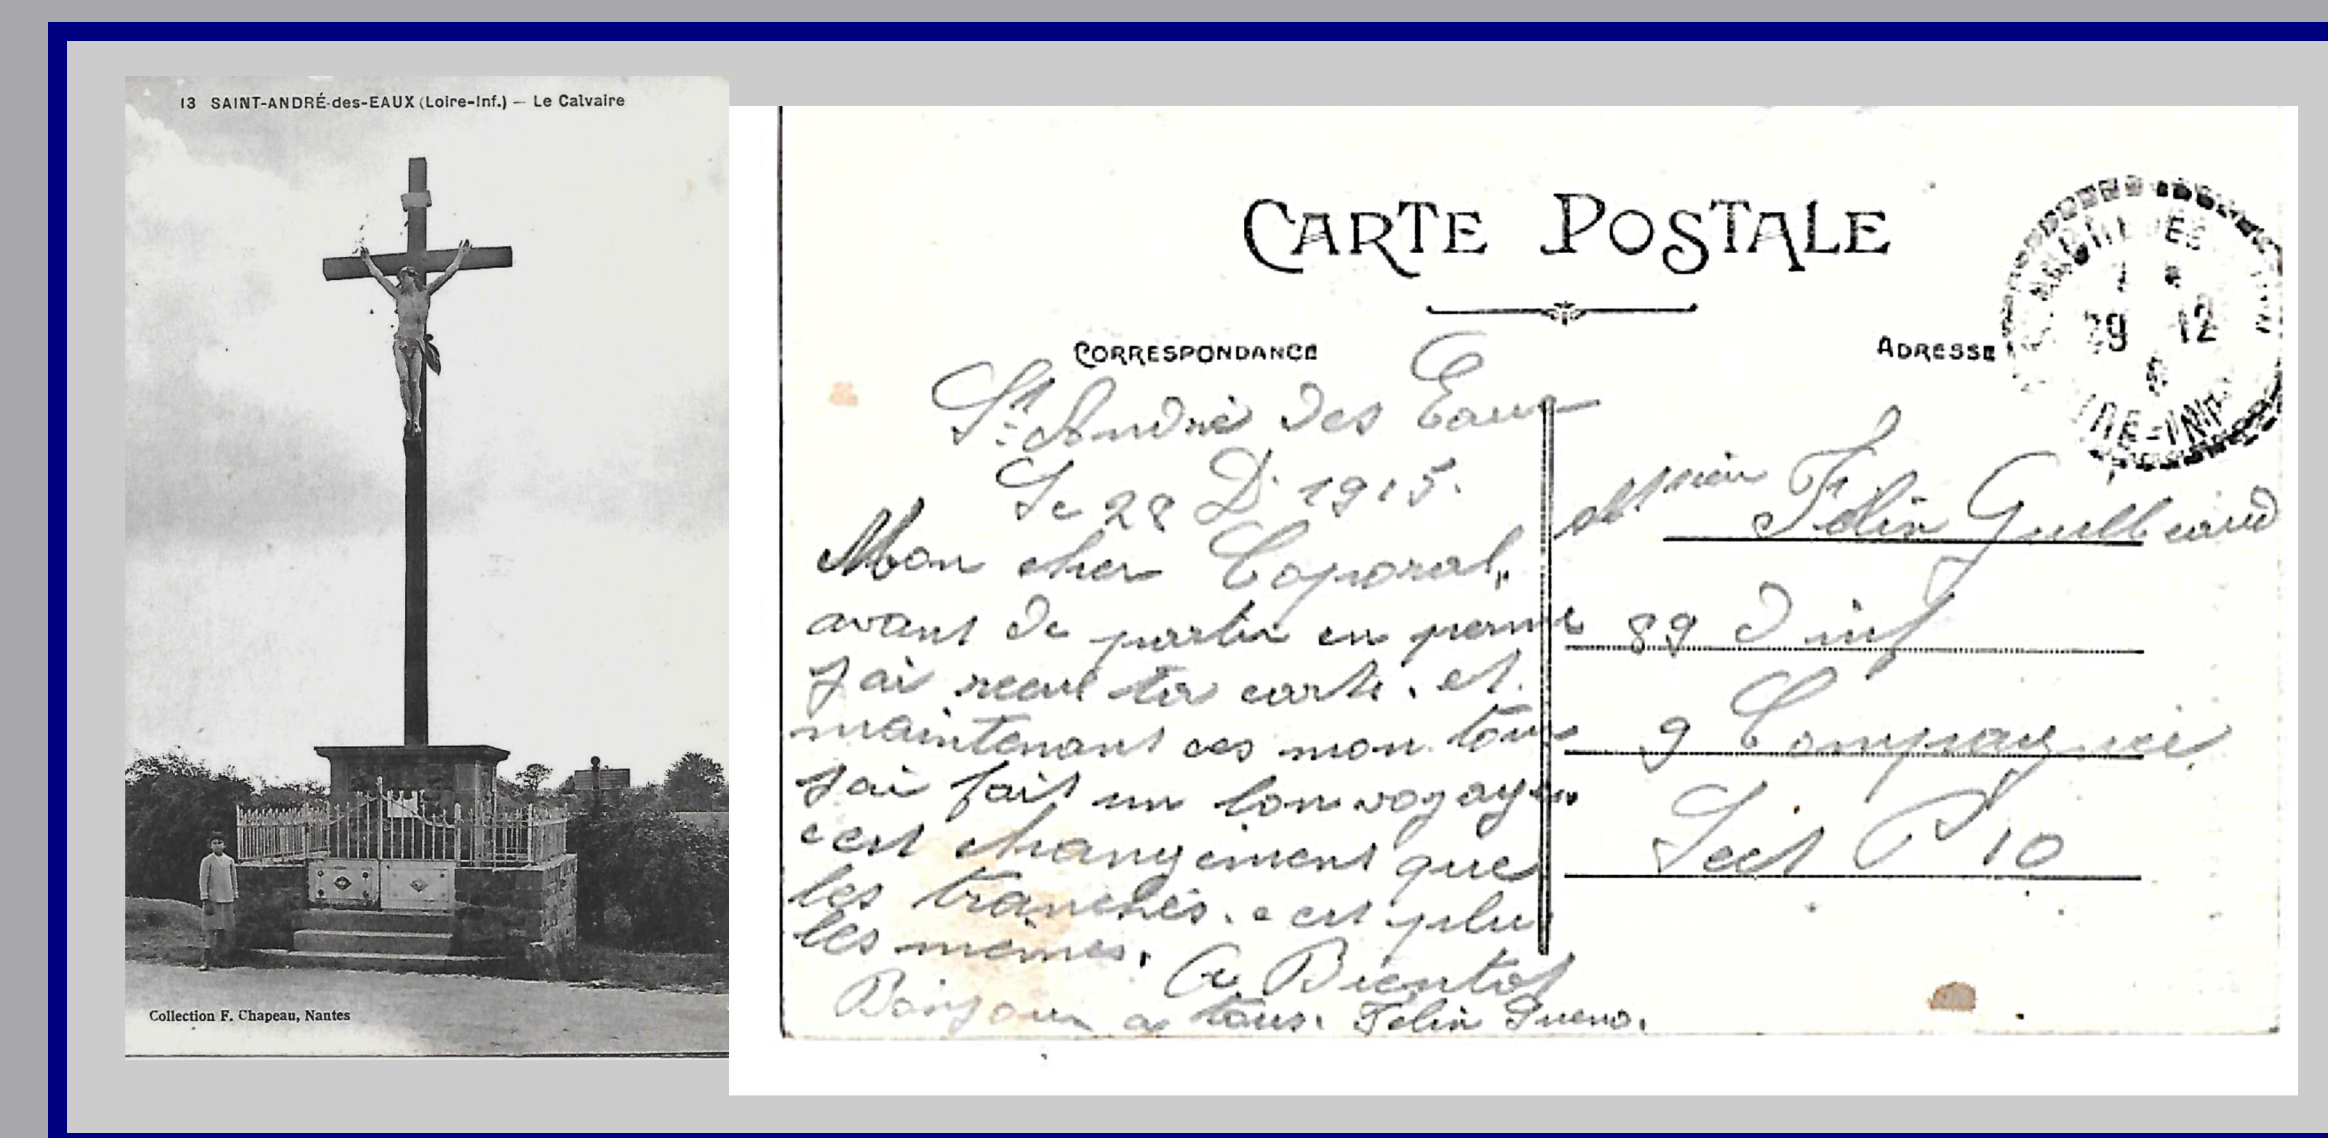 13 SAINT-ANDRÉ-des-EAUX (Loire-Inf.) — Le Calvaire
Collection F. Chapeau, Nantes
CARTE POSTALE
CORRESPONDANCE
St André des Eaux
Le 28 D. 1915.
Mon cher Caporal,
avant de partir en perme
J'ai recue ta carte. et
maintenant ces mon tour
J'ai fait un bon voyage
c'est changement que
les tranchés. c est plu
les mêmes.
A Bientot
Bonjour a tous. Félix
ADRESSE
29 12
RE-INF
Félix Guilbeaud
89 D inf
9 Compagnie
Sect P 10